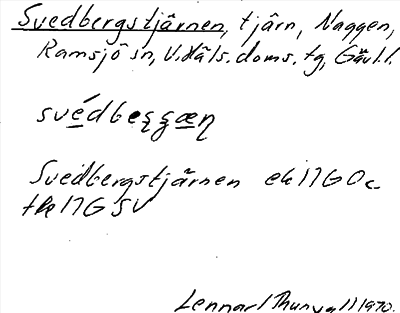 Svedbergstjärnen, tjärn, Naggen,
Ramsjö sn, V. Häls. doms. tg, Gävl. l.
svédberggæn
Svedbergstjärnen ek 17G 0c
tk 17G SV
Lennart Thunvall 1970.